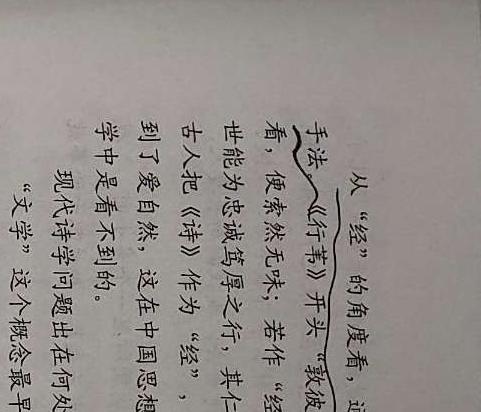 从“经”的角度看，
手法。《行苇》开头“敦彼
看，便索然无味；若作“经
世能为忠诚笃厚之行，其仁
古人把《诗》作为“经”，
到了爱自然，这在中国思想
学中是看不到的。
现代诗学问题出在何处
“文学”这个概念最早